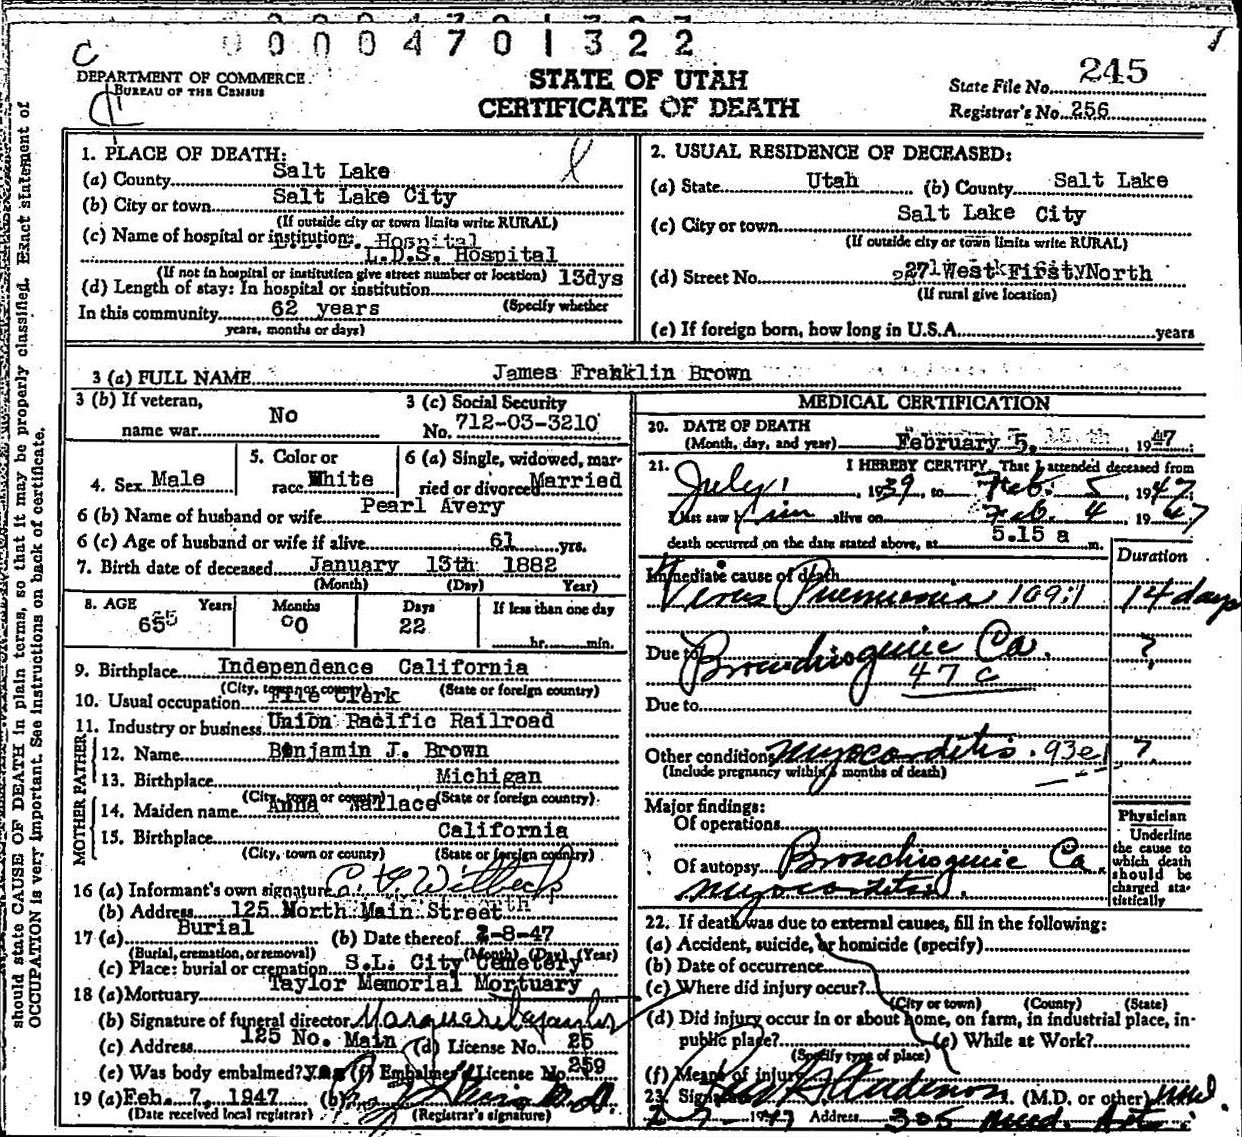 0004701322
C
DEPARTMENT OF COMMERCE
BUREAU OF THE CENSUS
STATE OF UTAH
CERTIFICATE OF DEATH
State File No. 245
Registrar's No. 256
should state CAUSE OF DEATH in plain terms, so that it may be properly classified. Exact statement of
OCCUPATION is very important. See instructions on back of certificate.
1. PLACE OF DEATH:
(a) County Salt Lake
(b) City or town Salt Lake City
(If outside city or town limits write RURAL)
(c) Name of hospital or institution: Hospital
L.D.S. Hospital
(If not in hospital or institution give street number or location)
(d) Length of stay: In hospital or institution 13dys
(Specify whether
In this community 62 years
years, months or days)
2. USUAL RESIDENCE OF DECEASED:
(a) State Utah (b) County Salt Lake
(c) City or town Salt Lake City
(If outside city or town limits write RURAL)
(d) Street No. 271 West First North
(If rural give location)
(e) If foreign born, how long in U.S.A. years
3 (a) FULL NAME James Franklin Brown
3 (b) If veteran,
name war No
3 (c) Social Security
No. 712-03-3210
4. Sex Male
5. Color or
race White
6 (a) Single, widowed, mar-
ried or divorced Married
6 (b) Name of husband or wife Pearl Avery
6 (c) Age of husband or wife if alive 61 yrs.
7. Birth date of deceased January 13th 1882
(Month) (Day) Year)
8. AGE Years Months Days If less than one day
65 0 22 hr. min.
9. Birthplace Independence California
(City, town or county) (State or foreign country)
10. Usual occupation File Clerk
11. Industry or business Union Pacific Railroad
FATHER
12. Name Benjamin J. Brown
13. Birthplace Michigan
(City, town or county) (State or foreign country)
MOTHER
14. Maiden name Anna Wallace
15. Birthplace California
(City, town or county) (State or foreign country)
16 (a) Informant's own signature
(b) Address 125 North Main Street
17 (a) Burial (b) Date thereof 2-8-47
(Burial, cremation, or removal) (Month) (Day) (Year)
(c) Place: burial or cremation S.L. City Cemetery
18 (a) Mortuary Taylor Memorial Mortuary
(b) Signature of funeral director
(c) Address 125 No. Main (d) License No. 25
(e) Was body embalmed? yes (f) Embalmer's License No. 259
19 (a) Feb. 7, 1947 (b)
(Date received local registrar) (Registrar's signature)
MEDICAL CERTIFICATION
20. DATE OF DEATH
(Month, day, and year) February 5, 1947
21. I HEREBY CERTIFY, That I attended deceased from
July 1, 1939, to Feb. 5 1947
I last saw him alive on Feb. 4 1947
death occurred on the date stated above, at 5.15 a m.
Duration
Immediate cause of death
Virus Pneumonia 109:1 14 days
Due to Bronchiogenic Ca. ?
47 c
Due to
Other conditions Myocarditis. 93e1 ?
(Include pregnancy within 3 months of death)
Major findings:
Of operations
Of autopsy Bronchiogenic Ca.
Myocarditis.
Physician
Underline
the cause to
which death
should be
charged sta-
tistically
22. If death was due to external causes, fill in the following:
(a) Accident, suicide, or homicide (specify)
(b) Date of occurrence
(c) Where did injury occur?
(City or town) (County) (State)
(d) Did injury occur in or about home, on farm, in industrial place, in-
public place? (e) While at Work?
(Specify type of place)
(f) Means of injury
23. Signature (M.D. or other)
2-7-1947 Address 305 Med. Arts